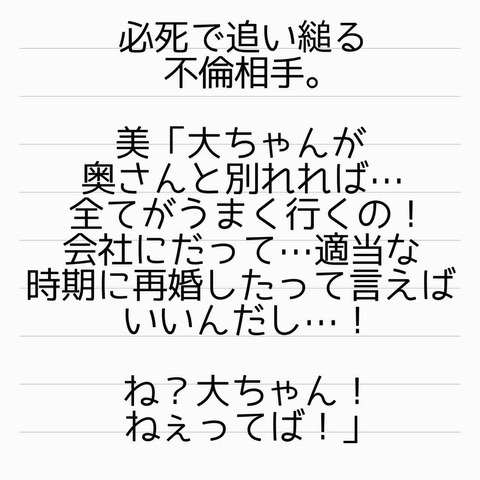 必死で追い縋る
不倫相手。
美「大ちゃんが
奥さんと別れれば…
全てがうまく行くの！
会社にだって…適当な
時期に再婚したって言えば
いいんだし…！
ね？大ちゃん！
ねぇってば！」